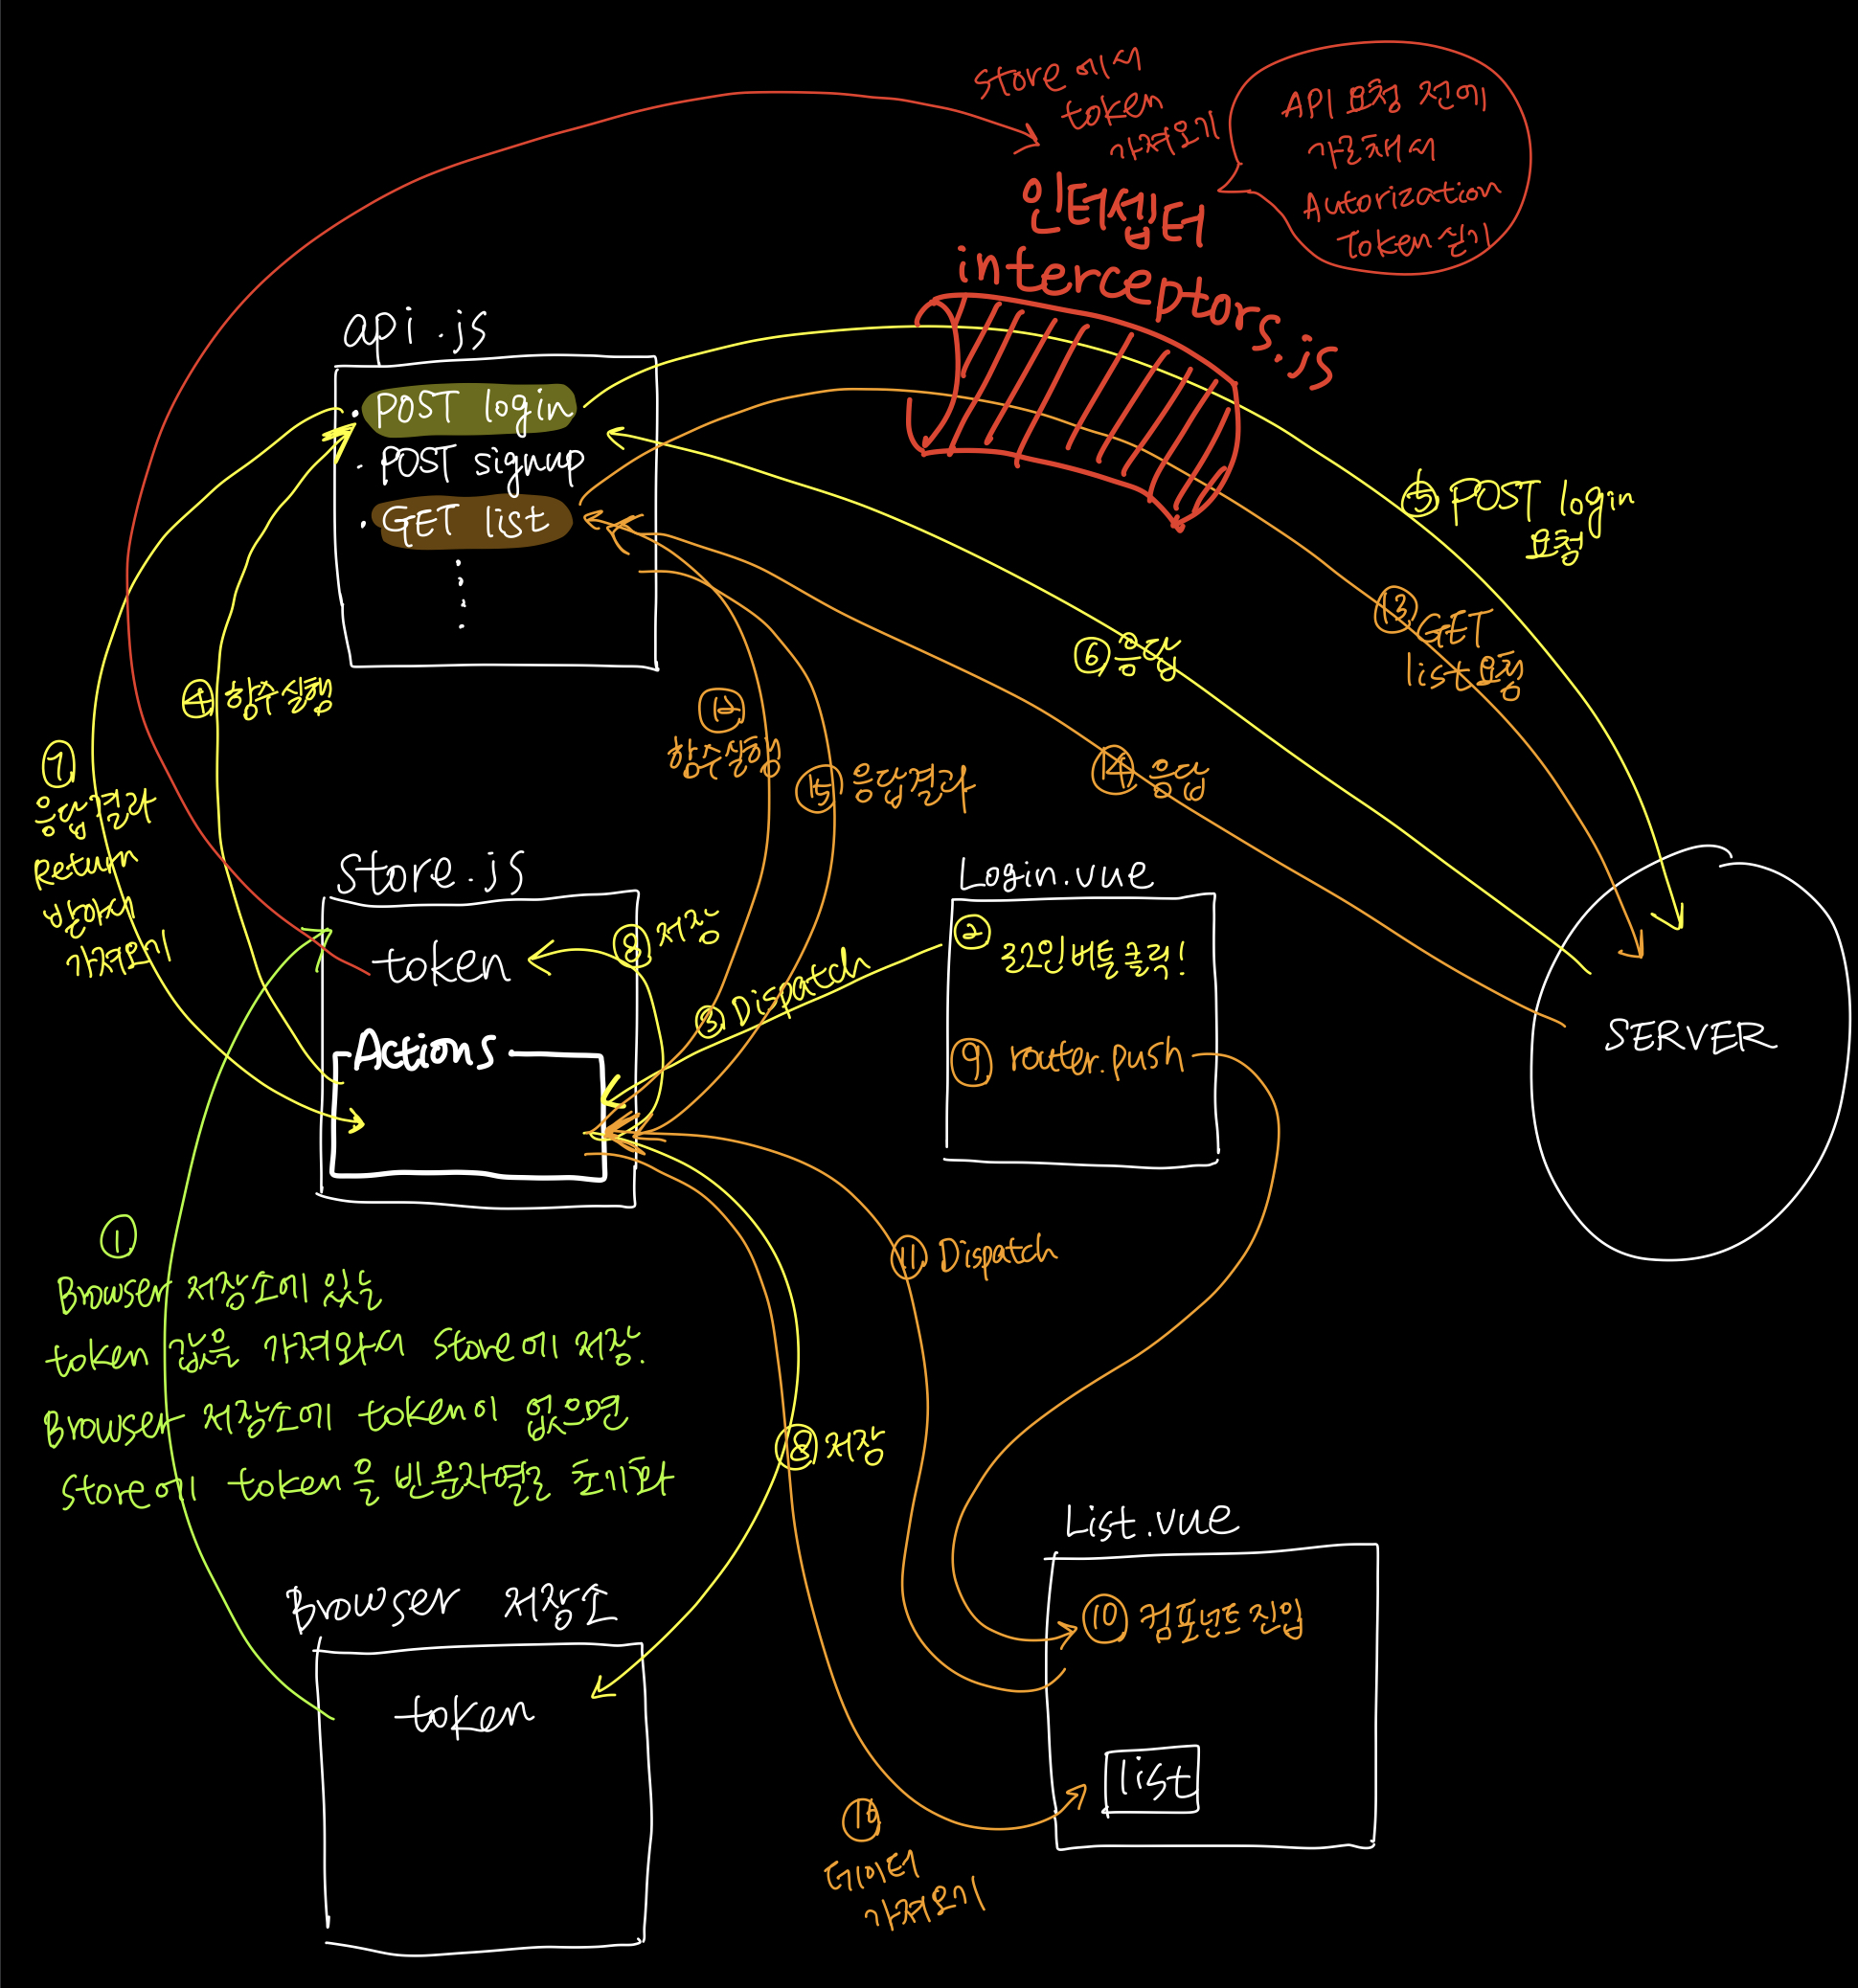 Store에서
token
가져오기
API 요청 전에
가로채서
Autorization
Token 싣기
인터셉터
interceptors.js
api.js
· POST login
· POST signup
· GET list
⑤ POST login
요청
⑬ GET
list 요청
⑥ 응답
④ 함수실행
⑫
함수실행
⑦
응답결과
Return
받아서
가져오기
⑮ 응답결과
⑭ 응답
Store.js
token
⑧ 저장
Actions
③ Dispatch
Login.vue
② 로그인버튼클릭!
⑨ router.push
SERVER
①
Browser 저장소에 있는
token 값을 가져와서 Store에 저장.
Browser 저장소에 token이 없으면
Store에 token을 빈문자열로 초기화
⑪ Dispatch
⑧ 저장
List.vue
⑩ 컴포넌트 진입
list
Browser 저장소
token
데이터
가져오기